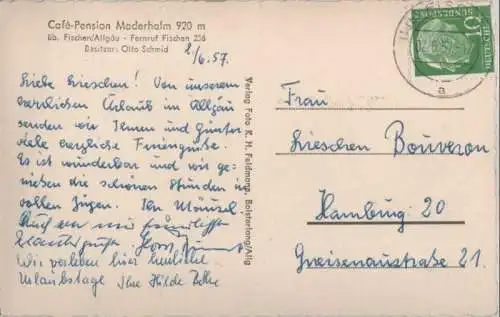 Café-Pension Maderhalm 920 m
üb. Fischen/Allgäu - Fernruf Fischen 236
Besitzer: Otto Schmid
2/6.57.
Liebe Lieschen! Von unserem
herrlichen Urlaub im Allgäu
senden wir Ihnen und Günter
viele herzliche Feriengrüße.
Es ist wunderbar und wir ge-
nießen die schönen Stunden in
vollen Zügen. Ihr
Auch von mir
Horst
Wir verleben hier herrliche
Urlaubstage Ihre Hilde
Verlag Foto K. H. Feldmann, Bolsterlang/Allg
DEUTSCHE
BUNDESPOST
10
a
Frau
Lieschen Bouveron
Hamburg 20
Gneisenaustraße 21.